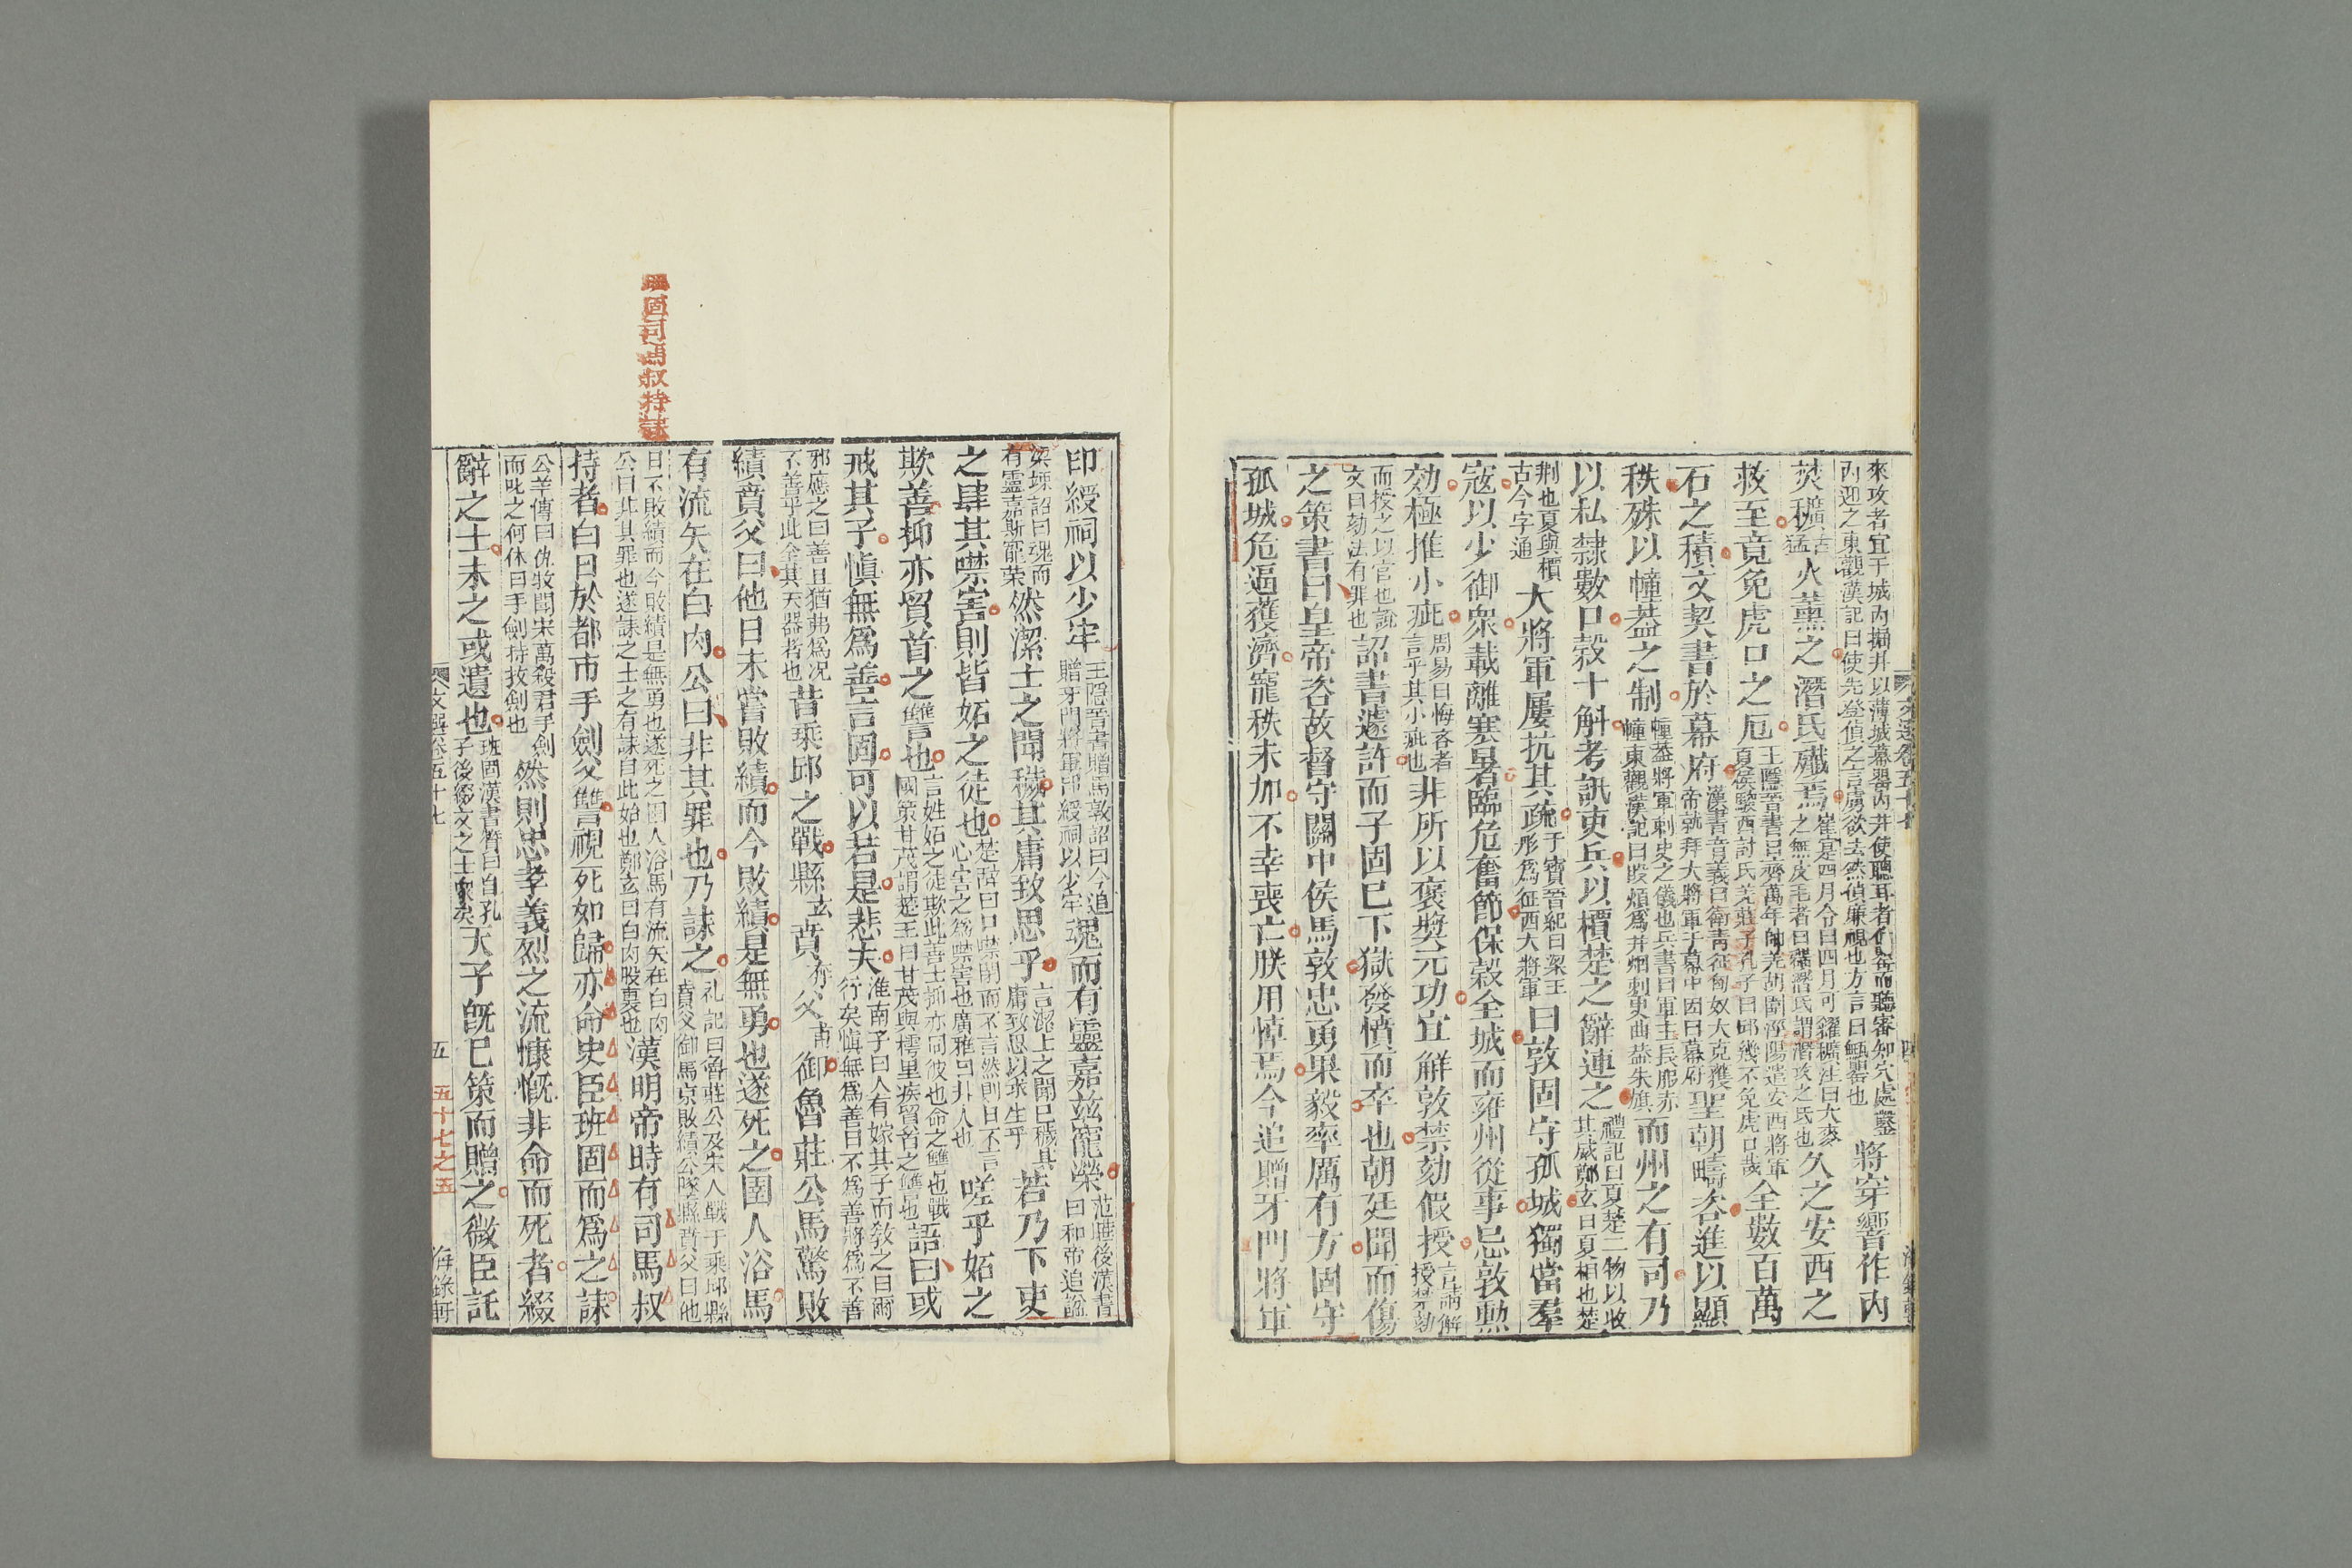 來攻者宜于城內掘井以薄城幕甖內井使聰耳者伏甖而聽審知穴處鑿
內迎之東觀漢記曰使先登偵之言虜欲去然偵廉視也方言曰甀甖也
將穿響作內
焚穬古猛火薰之潛氏殲焉崔寔四月令曰四月可糴穬注曰大麥
之無皮毛者曰穬潛氏謂潛攻之氏也久之安西之
救至竟免虎口之厄王隱晉書曰齊萬年帥羌胡圍涇陽遣安西將軍
夏侯駿西討氐羌莊子孔子曰丘幾不免虎口哉全數百萬
石之積文契書於幕府漢書音義曰衛青征匈奴大克獲
帝就拜大將軍于幕中因曰幕府聖朝疇咨進以顯
秩殊以幢蓋之制幢蓋將軍刺史之儀也兵書曰軍主長服赤
幢東觀漢記曰段熲爲并州刺史曲蓋朱旗而州之有司乃
以私隸數口穀十斛考訊吏兵以檟楚之辭連之禮記曰夏楚二物以收
其威鄭玄曰夏榎也楚
荆也夏與檟
古今字通大將軍屢抗其疏于寶晉紀曰梁王
肜爲征西大將軍曰敦固守孤城獨當羣
寇以少御衆載離寒暑臨危奮節保穀全城而雍州從事忌敦勳
効極推小疵周易曰悔吝者
言乎其小疵也非所以褒奬元功宜解敦禁劾假授言請解
授禁劾
而授之以官也說
文曰劾法有罪也詔書遽許而子固已下獄發憤而卒也朝廷聞而傷
之策書曰皇帝咨故督守關中侯馬敦忠勇果毅率厲有方固守
孤城危逼獲濟寵秩未加不幸喪亡朕用悼焉今追贈牙門將軍
印綬祠以少牢王隱晉書贈馬敦詔曰今追
贈牙門將軍印綬祠以少牢魂而有靈嘉茲寵榮范曄後漢書
曰和帝追諡
梁竦詔曰魂而
有靈嘉斯寵榮然潔士之聞穢其庸致思乎言潔士之聞已穢其
庸致思以求生乎若乃下吏
之肆其噤害則皆妬之徒也楚辭曰口噤閉而不言然則口不言
心害之爲噤害也廣雅曰嗟乎妬之
欺善抑亦貿首之讎也言姤妬之徒欺此善士抑亦同彼也命之讎也戰
國策甘茂謂楚王曰甘茂與樗里疾貿首之讎也語曰或
戒其子愼無爲善言固可以若是悲夫淮南子曰人有嫁其子而敎之曰爾
行矣愼無爲善曰不爲善將爲不善
邪應之曰善且猶弗爲況
不善乎此全其天器者也昔乘邱之戰縣玄賁奔父甫御魯莊公馬驚敗
績賁父曰他日未嘗敗績而今敗績是無勇也遂死之圉人浴馬
有流矢在白肉公曰非其罪也乃誄之禮記曰魯莊公及宋人戰于乘邱縣
賁父御馬驚敗績公隊縣賁父曰他
日不敗績而今敗績是無勇也遂死之圉人浴馬有流矢在白肉
公曰非其罪也遂誄之士之有誄自此始也鄭玄曰白肉股裏也漢明帝時有司馬叔
持者白日於都市手劍父讎視死如歸亦命史臣班固而爲之誄
公羊傳曰仇牧聞宋萬殺君手劍
而叱之何休曰手劍持拔劍也然則忠孝義烈之流慷慨非命而死者綴
辭之士未之或遺也班固漢書贊曰自孔
子後綴文之士衆矣天子旣已策而贈之微臣託
文選卷五十七
五
五十七之五
海錄軒
班固司馬叔持誄